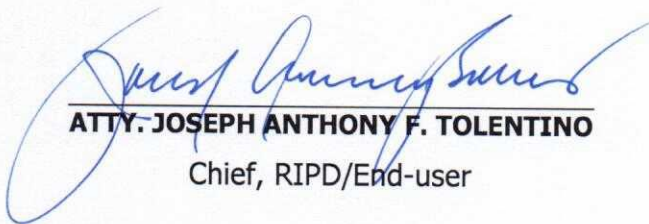 ATTY. JOSEPH ANTHONY F. TOLENTINO
Chief, RIPD/End-user